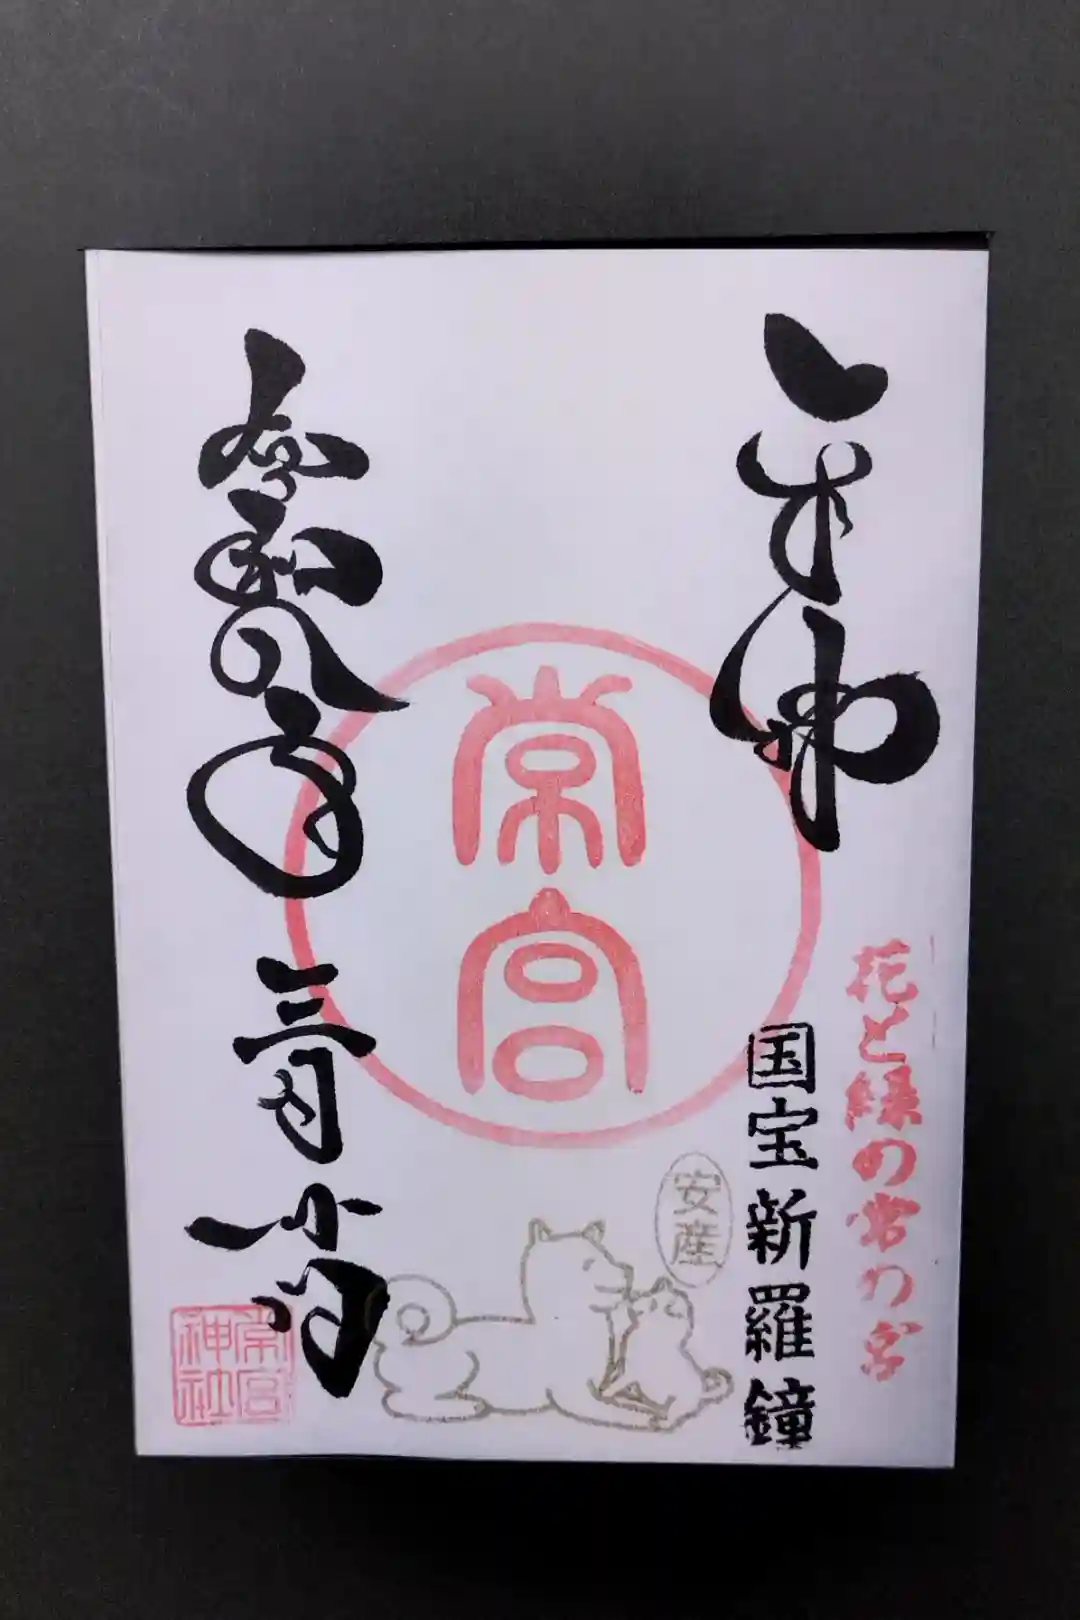 奉拝
花と緑の常の宮
国宝新羅鐘
安産
常宮
令和八年三月
常宮神社